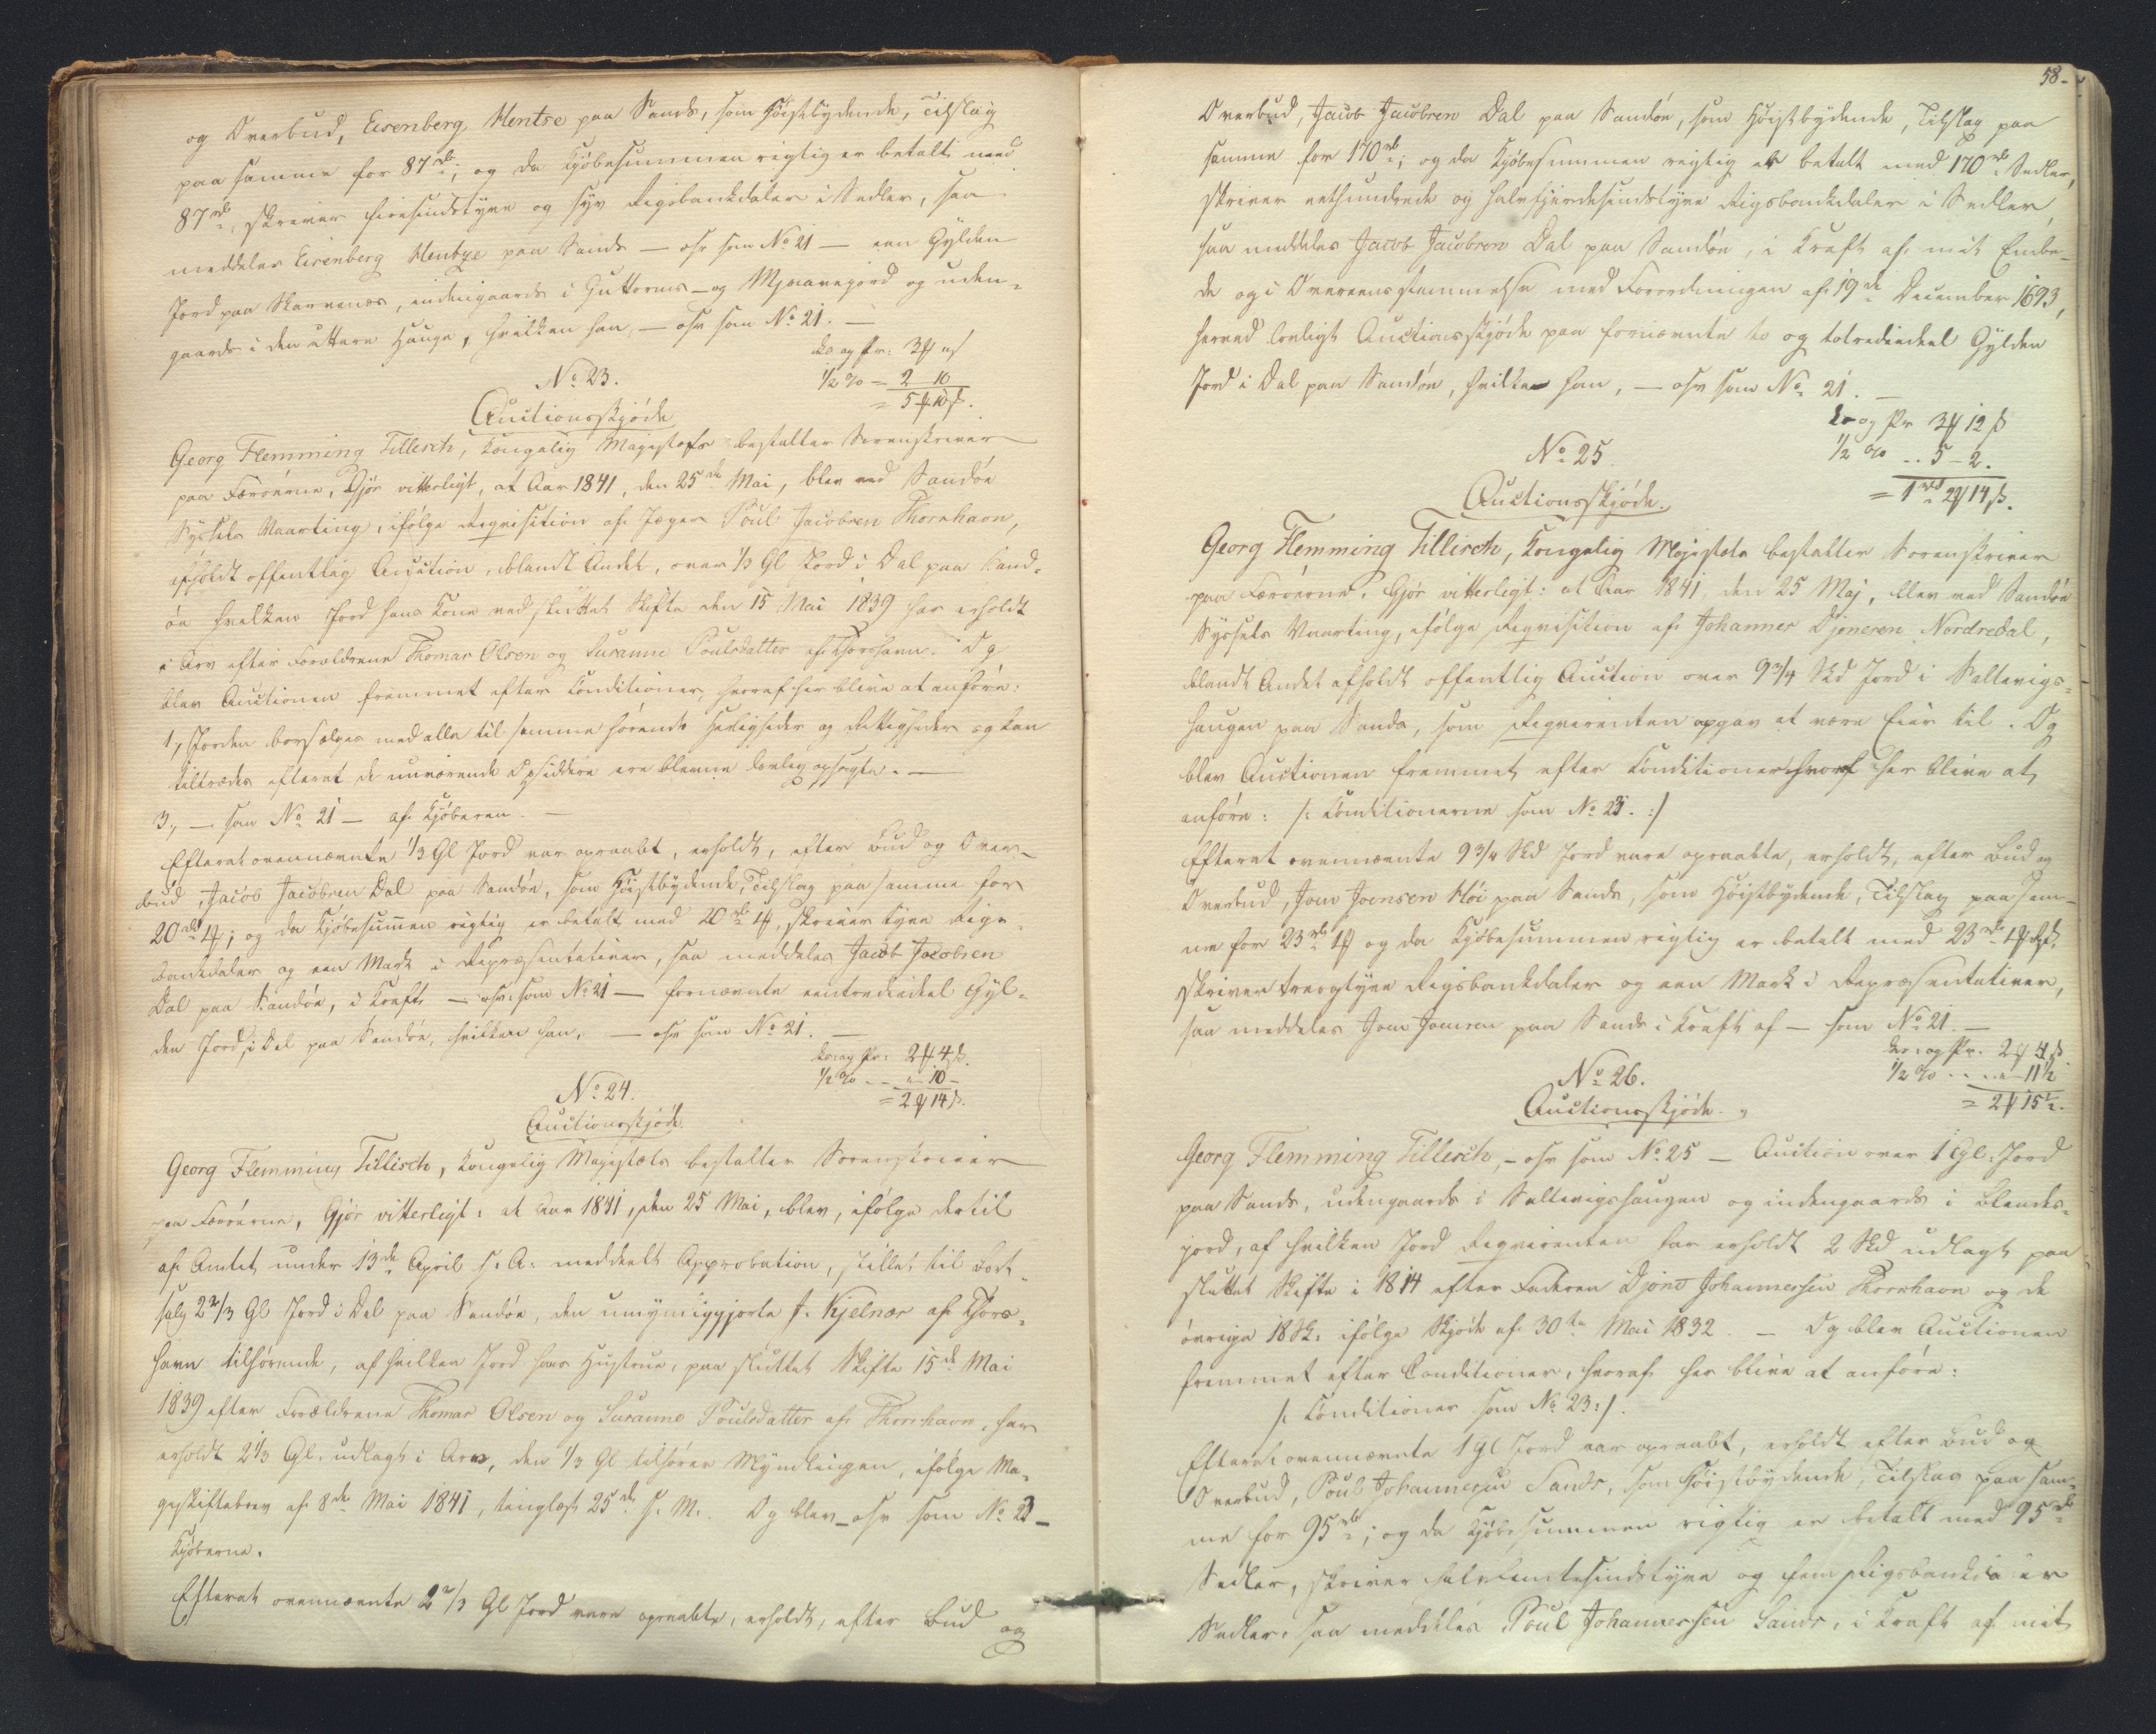 og Overbud, Eisenberg Hentze paa Sands, som Høistbydende, Tilslag
paa samme for 87 rbd; og da Kjøbesummen rigtig er betalt med
87 rbd, skriver firesindstyve og syv Rigsbankdaler i Sedler, saa
meddeles Eisenberg Hentze paa Sands — osv som No 21 — een Gylden
Jord paa Skarvenes, indengaards i Guttorms- og Mjaavegjord og uden-
gaards i den Hauge, hvilken han, — osv som No 21. —
No 23.
Co og Pr: 3 ₰
1/2 % = 2 10
= 5 ₰ 10 ß.
Auctionsskjöde
Georg Flemming Tillisch, Kongelig Majestæts bestalter Sorenskriver
paa Færöerne, Gjör vitterligt, at Aar 1841, den 25de Mai, blev ved Sandöe
Syssels Vaarting, ifölge Reqvisition af Jæger Poul Jacobsen Thorshavn,
afholdt offentlig Auction, blandt Andet, over 1/3 Gl Jord i Dal paa Sand-
öe hvilken Jord hans Kone ved sluttet Skifte den 15 Mai 1839 har erholdt
i Arv efter Forældrene Thomas Olsen og Susanne Poulsdatter af Thorshavn. Og
blev Auctionen fremmet efter Conditioner, hvoraf her blive at anföre:
1, Jorden bortsælges med alle til samme hörende Herligheder og Rettigheder og kan
tiltrædes efterat de nuværende Opsiddere ere blevne lovlig opsagte. —
3, — som No 21 — af Kjöberen. —
Efterat ovennævnte 1/3 Gl Jord var opraabt, erholdt, efter Bud og Over-
bud, Jacob Jacobsen Dal paa Sandöe, som Höistbydende, Tilslag paa samme for
20 rbd 1 ₰; og da Kjöbesummen rigtig er betalt med 20 rbd 1 ₰, skriver tyve Rigs-
bankdaler og een Mark i Repræsentativer, saa meddeles Jacob Jacobsen
Dal paa Sandöe, i Kraft — osv: som No 21 — fornævnte eentrediedeel Gyl-
den Jord, i Dal paa Sandöe, hvilken han, — osv som No 21. —
Co: og Pr: 2 ₰ 4 ß.
1/2 % - - " - 10 -
= 2 ₰ 14 ß.
No 24.
Auctionsskjöde.
Georg Flemming Tillisch, Kongelig Majestæts bestalter Sorenskriver
paa Færöerne, Gjör vitterligt: at Aar 1841, den 25 Mai, blev, ifölge dertil
af Amtet under 13de April s. A. meddeelt Approbation, stillet til Bort-
salg 2 2/3 Gl Jord i Dal paa Sandöe, den umyndiggjorte J. Kjelnæs af Thors-
havn tilhörende, af hvilken Jord hans Hustrue, paa sluttet Skifte 15de Mai
1839 efter Forældrene Thomas Olsen og Susanne Poulsdatter af Thorshavn, har
erholdt 2 1/3 Gl. udlagt i Arv, den 1/3 Gl tilhörer Myndlingen, ifölge Ma-
geskiftebrev af 8de Mai 1841, tinglæst 25de s. M. Og blev — osv som No 23 —
Kjöberne.
Efterat ovennævnte 2 2/3 Gl Jord vare opraabte, erholdt, efter Bud
og
58.
Overbud, Jacob Jacobsen Dal paa Sandöe, som Höistbydende, Tilslag paa
samme for 170 rbd; og da Kjöbesummen rigtig er betalt med 170 rbd Sedler,
skriver eethundrede og halvfjerdesindstyve Rigsbankdaler i Sedler,
saa meddeles Jacob Jacobsen Dal paa Sandöe, i Kraft af mit Embe-
de og i Overeensstemmelse med Forordningen af 19de December 1693,
herved lovligt Auctionsskjöde paa fornævnte to og totrediedeel Gylden
Jord i Dal paa Sandöe, hvilken han, — osv som No 21. —
Co og Pr 3 ₰ 12 ß
1/2 % - . 5 - 2.
= 1 rbd 2 ₰ 14 ß.
No 25.
Auctionsskjöde.
Georg Flemming Tillisch, Kongelig Majestæts bestalter Sorenskriver
paa Færöerne, Gjör vitterligt: at Aar 1841, den 25 Maj, blev ved Sandöe
Syssels Vaarting, ifölge Reqvisition af Johannes Djonesen Nordredal,
blandt Andet afholdt offentlig Auction over 9 3/4 Skd Jord i Saltevigs-
haugen paa Sands, som Reqvirenten opgav at være Eier til. Og
blev Auctionen fremmet efter Conditioner hvoraf her blive at
anföre: /: Conditionerne som No 23. :/
Efterat ovennævnte 9 3/4 Skd Jord vare opraabte, erholdt, efter Bud og
Overbud, Joen Joensen Höi paa Sands, som Höistbydende, Tilslag paa sam-
me for 23 rbd 1 ₰ og da Kjöbesummen rigtig er betalt med 23 rbd 1 ₰
skriver treogtyve Rigsbankdaler og een Mark i Repræsentativer,
saa meddeles Joen Joensen paa Sands i Kraft af — som No 21. —
Co: og Pr. 2 ₰ 4 ß
1/2 % - - . . " - 11 1/2
= 2 ₰ 15 1/2.
No 26.
Auctionsskjöde.
Georg Flemming Tillisch, — osv som No 25 — Auction over 1 Gl. Jord
paa Sands, udengaards i Saltevigshaugen og indengaards i Blandes-
jord, af hvilken Jord Reqvirenten har erholdt 2 Skd udlagt paa
sluttet Skifte i 1814 efter Faderen Djone Johannessen Thorshavn og de
övrige 18 Sk. ifölge Skjöde af 30te Mai 1832. — Og blev Auctionen
fremmet efter Conditioner, hvoraf her blive at anföre:
/: Conditioner som No 23 :/.
Efterat ovennævnte 1 Gl Jord var opraabt, erholdt efter Bud og
Overbud, Poul Johannessen Sands, som Höistbydende, Tilslag paa sam-
me for 95 rbd; og da Kjöbesummen rigtig er betalt med 95 rbd
Sedler, skriver halvfemtesindstyve og fem Rigsbankdaler
Sedler, saa meddeles Poul Johannessen Sands, i Kraft af mit